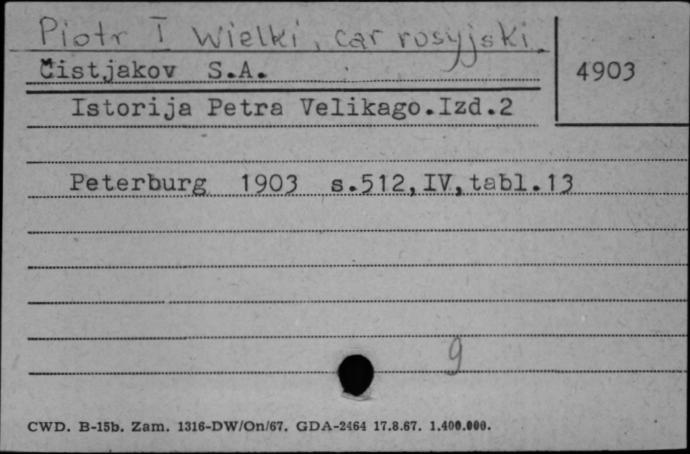 Piotr I Wielki, car rosyjski.
Čistjakov S.A.
4903
Istorija Petra Velikago.Izd.2
Peterburg 1903 s.512,IV,tabl.13
9
CWD. B-15b. Zam. 1316-DW/On/67. GDA-2464 17.8.67. 1.400.000.